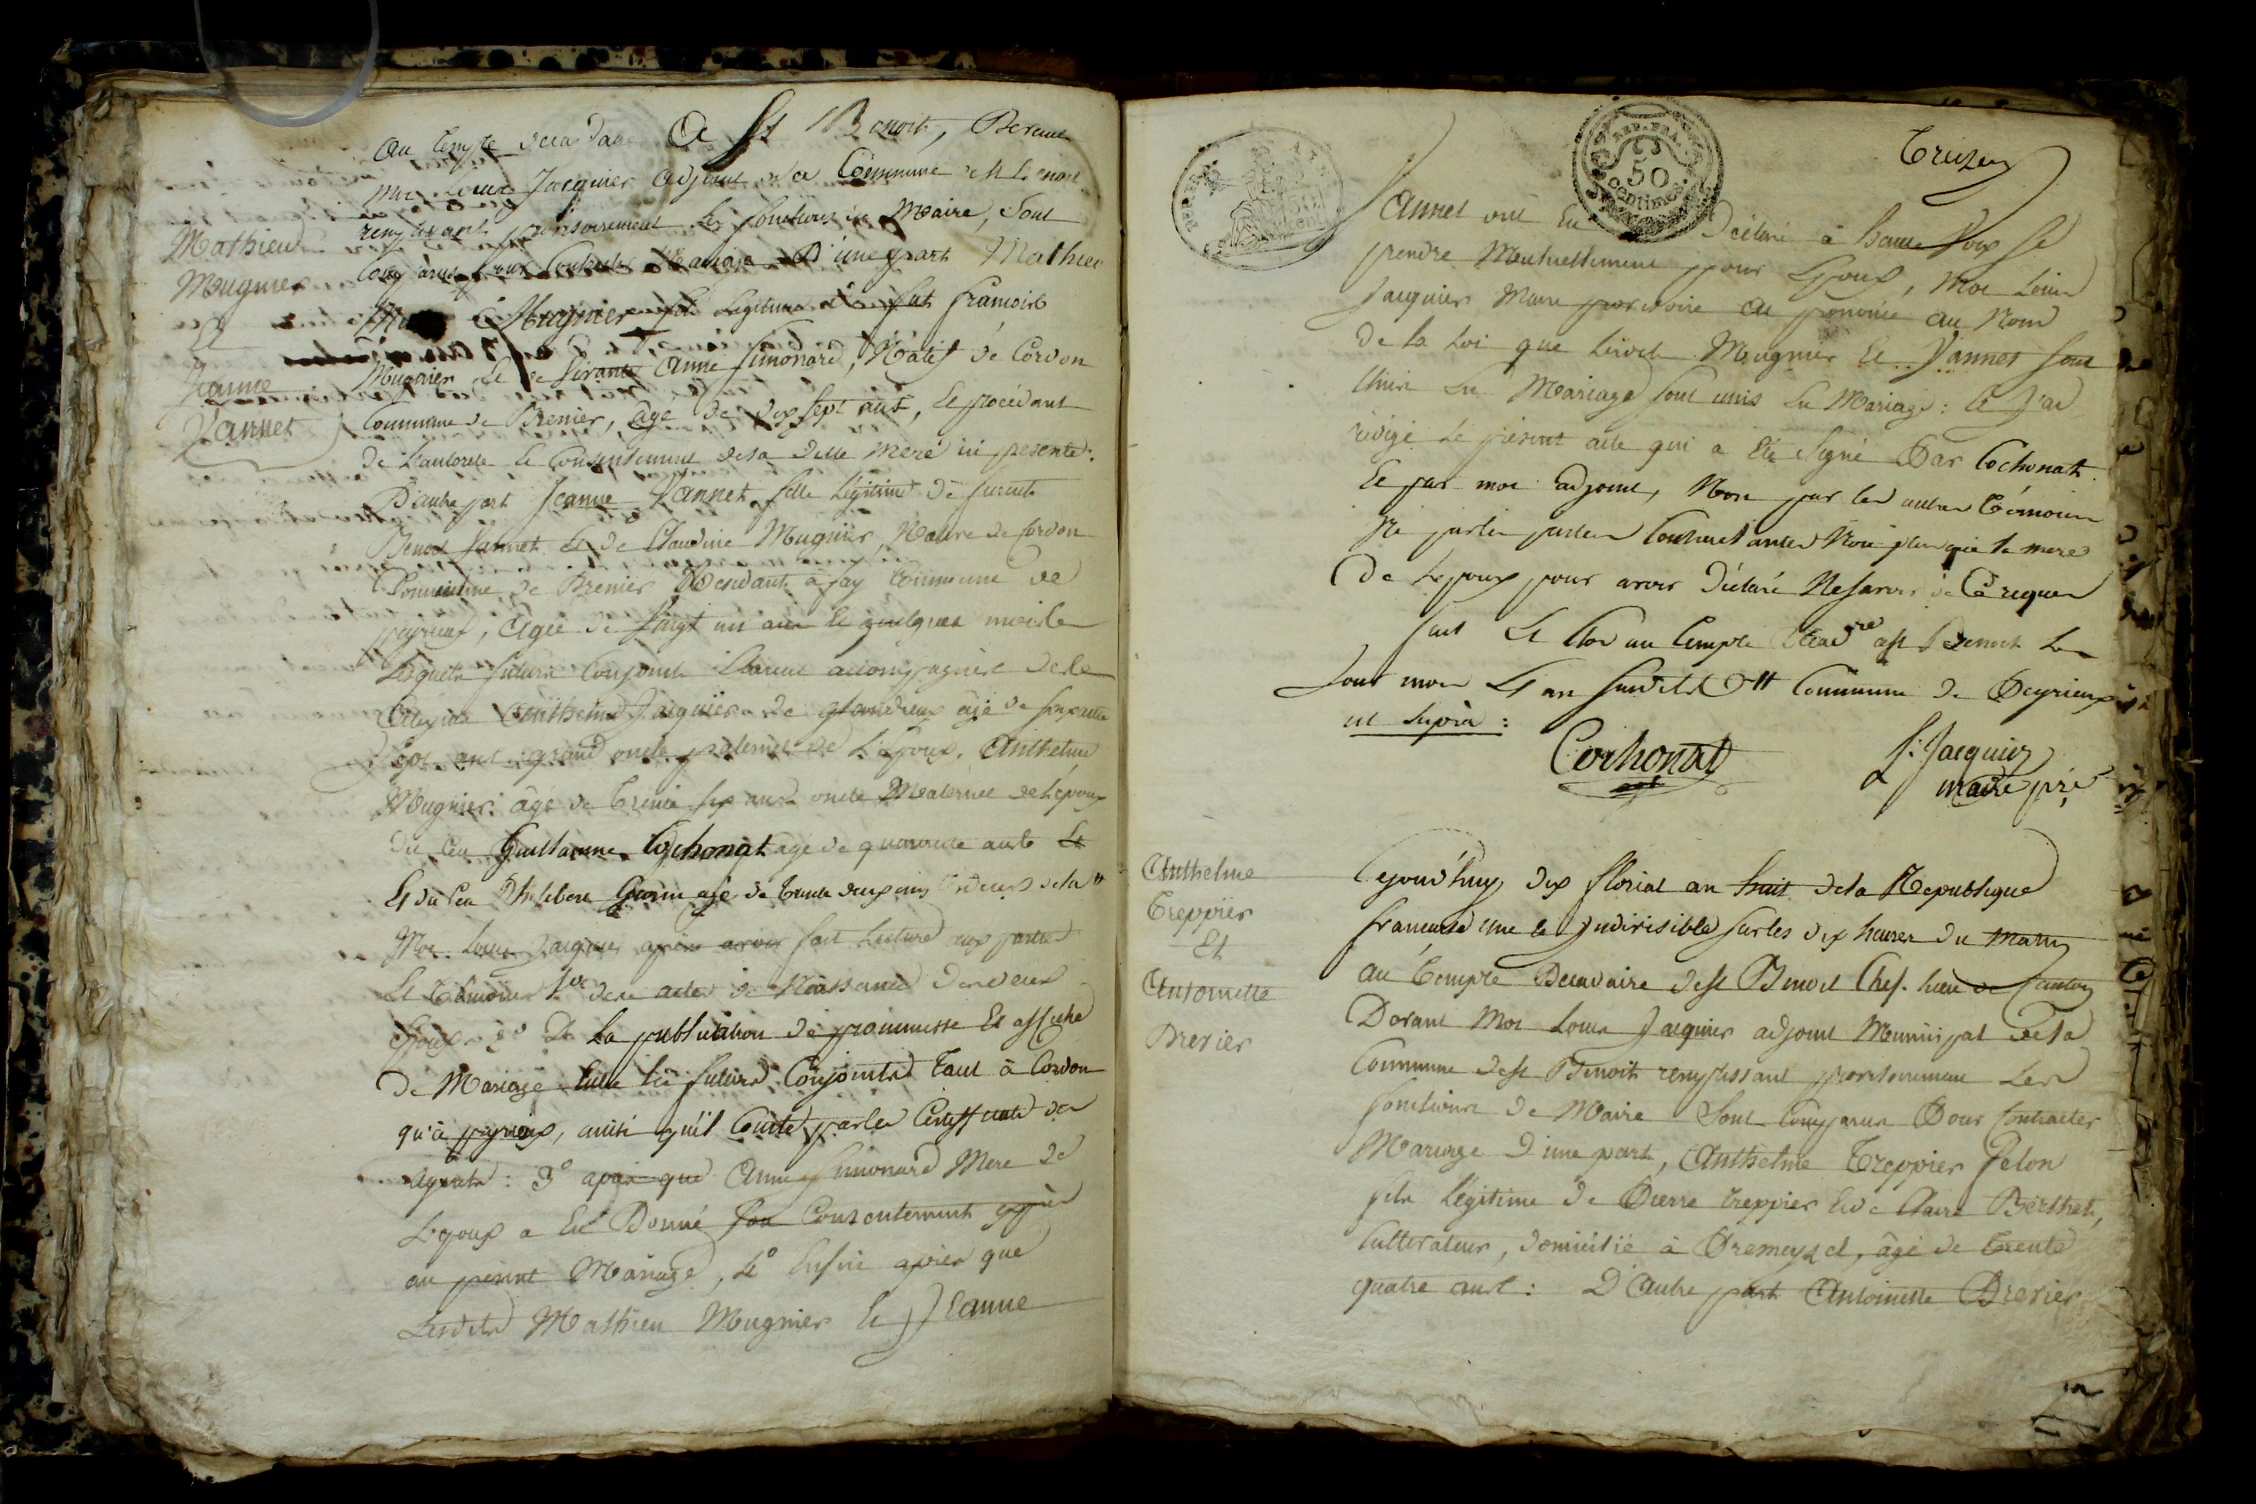 au temple decadaire a St Benoit, Devant
moi Louis Jacquier adjoint de la Commune de St Benoit
remplissant provisoirement les fonctions de Maire, Sont
comparus pour Contracter Mariage D'une part Mathieu
Mugnier fils légitime de fut francois
Mugnier et de vivante Anne Simonard, Natif de Cordon
Commune de Brenier, âgé de dix sept ans, et procédant
de L'autorité et Consentement de sa dite mere ici presente.
D'autre part Jeanne Jannet fille légitime de
Benoit Jannet et de Claudine Mugnier, Native de Cordon
Commune de Brenier Residante à fay Commune de
peyrieux, agée de vingt un ans et quelques mois
Lesquels futurs Conjoints étaient accompagnés de
Anthelme Jacquier de âgé de soixante
sept ans grand oncle paternel de L'époux, Anthelme
Mugnier âgé de trente six ans oncle Maternel de L'époux
du Cen Guillaume Cochonat agé de quarante ans et
Et du Cen Philibert Guérin agé de trente deux ans
Moi Louis Jacquier après avoir fait lecture aux parties
Et témoins 1º des actes de Naissance des deux
Epoux 2º De La publication de prommesse Et affiche
de Mariage entre les futurs Conjoints tant à Cordon
qu'à peyrieux, ainsi qu'il Conste par les Certifficats des
agents: 3º après que Anne Simonard Mere de
L'époux a Eu Donné son Consentement
au présent Mariage, 4º Enfin après que
Lesdits Mathieu Mugnier et Jeanne
Mathieu
Mugnier
Et
Jeanne
Jannet
REP. FRA.
50
centimes
Treizey
Jannet ont Eu Déclaré à haute voix se
prendre Mutuellement pour Epoux, Moi Louis
Jacquier Maire provisoire ai prononcé au Nom
de la Loi que Lesdits Mugnier et Jannet sont
Unis En Mariage sont unis En Mariage: Et J'ai
rédigé Le présent acte qui a Eté Signé Par Cochonat
Et par moi adjoint, Non par les autres Témoins
Ni par les parties Contractantes Non plus que la mere
De L'epoux pour avoir Déclaré Ne savoir de Ce requis
fait Et Clos au Temple Décadre à St Benoit Les
Jour mois Et an susdits Commune de Peyrieux
ut supra:
Cochonat
L: Jacquier
maire pré
Anthelme
Treppier
Et
Antoinette
Drevier
Cejourd'huy dix floréal an huit de la République
francaise une et Indivisible sur les dix heures du matin
au Temple Decadaire de St Benoit Chef. Lieu de Canton
Devant Moi Louis Jacquier adjoint Municipal de la
Commune de St Benoit remplissant provisoirement Les
fonctions de Maire Sont Comparus Pour Contracter
Mariage D'une part, Anthelme Treppier Pelon
fils légitime de Pierre treppier et de Claire Berthet,
Cultivateur, domicilié à Premeyzel, âgé de trente
quatre ans: D'Autre part Antoinette Drevier